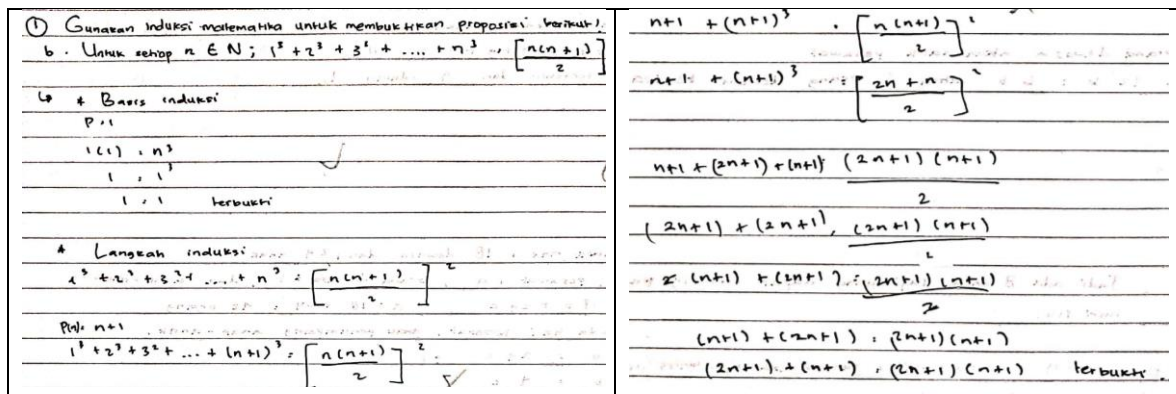 ① Gunakan Induksi matematika untuk membuktikan proposisi berikut!
b. Untuk setiap n ∈ N ; 1³ + 2³ + 3³ + .... + n³ = [n(n+1)/2]
↳ * Basis induksi
P = 1
1(1) = n³
1 = 1³
1 = 1 terbukti
* Langkah induksi
1³ + 2³ + 3³ + ... + n³ = [n(n+1)/2]²
P(n) = n+1
1³ + 2³ + 3² + ... + (n+1)³ = [n(n+1)/2]²
n+1 + (n+1)³ = [n(n+1)/2]²
n+1 + (n+1)³ = [2n+n/2]²
n+1 + (2n+1) + (n+1) = (2n+1)(n+1)/2
(2n+1) + (2n+1) = (2n+1)(n+1)/2
2(n+1) + (2n+1) = (2n+1)(n+1)/2
(n+1) + (2n+1) = (2n+1)(n+1)
(2n+1) + (n+1) = (2n+1)(n+1) terbukti.